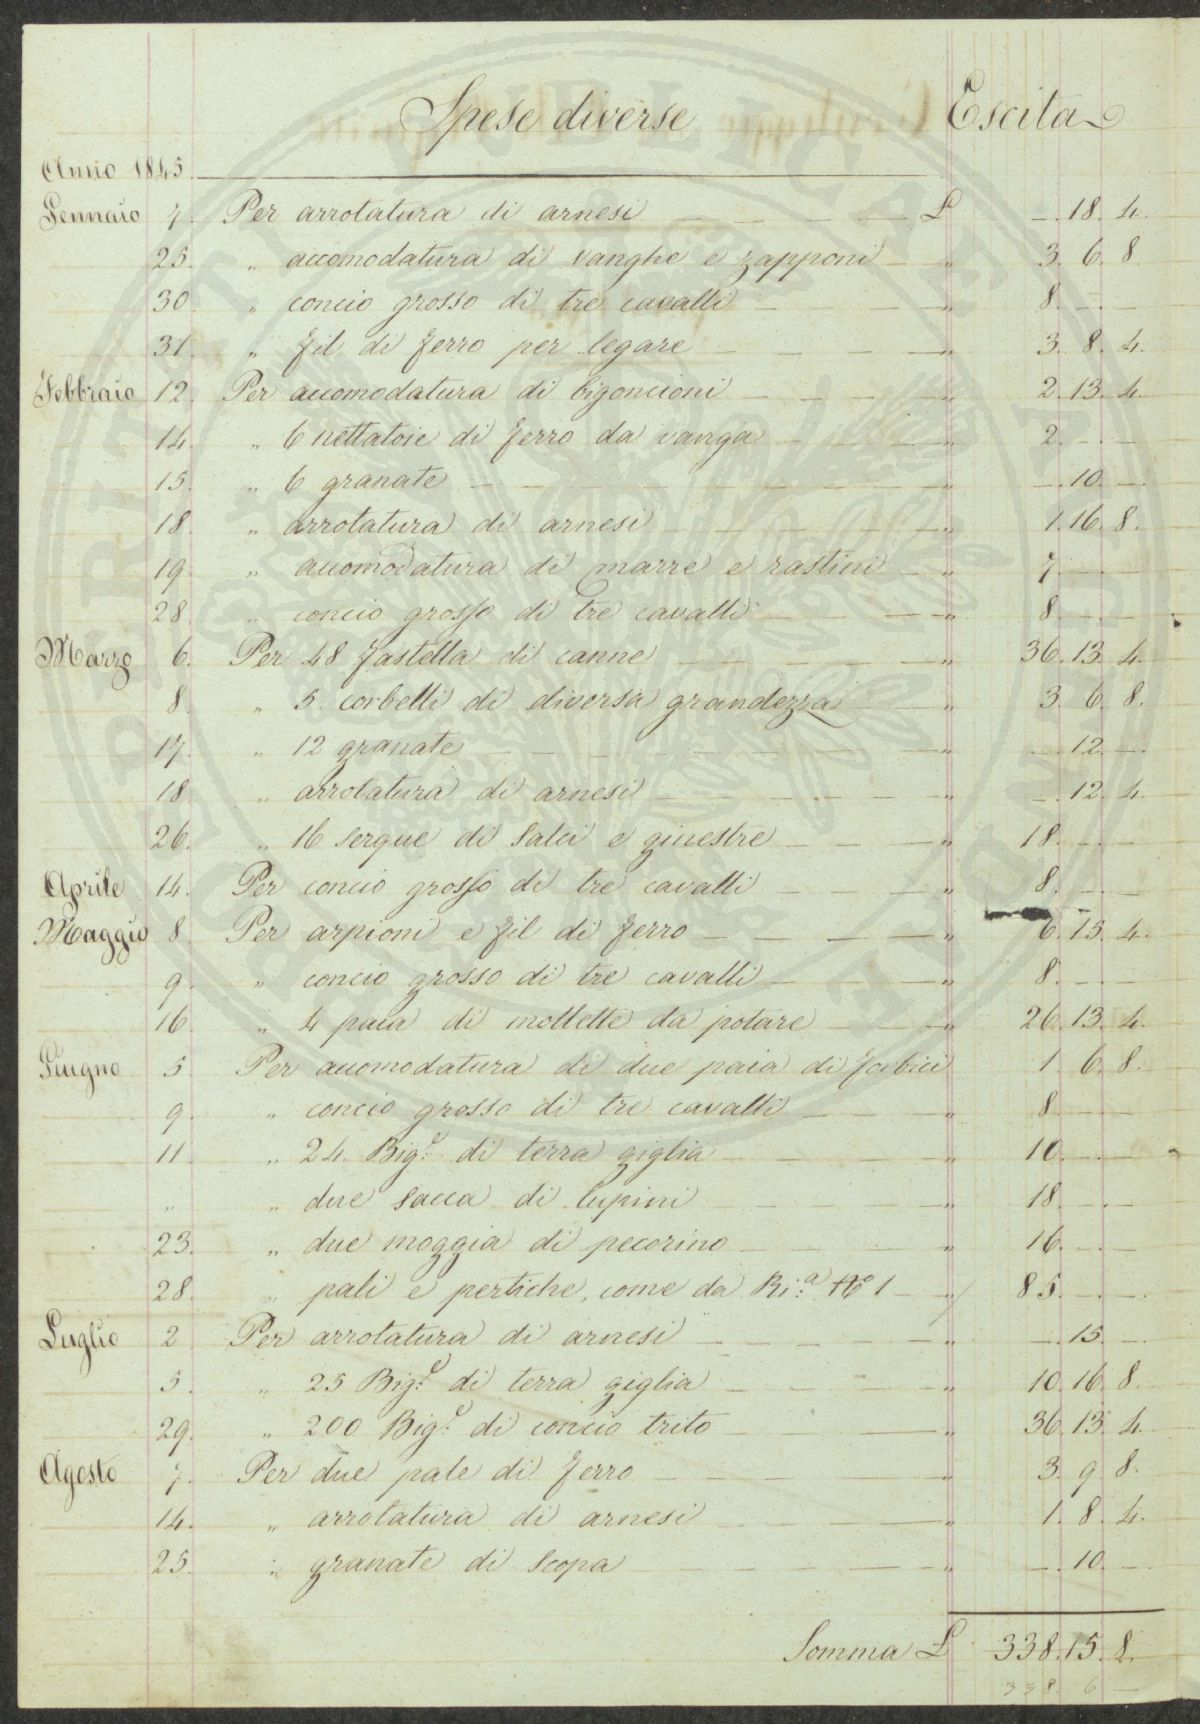 Spese diverse Escita
Anno 1845
Gennaio 7. Per arrotatura di arnesi — — — — £ — . 18. 4.
25. „ accomodatura di vanghe e zapponi — „ 3. 6. 8.
30 „ concio grosso di tre cavalli — — — „ 8. — . —
31. „ fil di ferro per legare — — — — „ 3. 8. 4.
Febbraio 12. Per accomodatura di bigoncioni — — — „ 2. 13. 4.
14. „ 6 nettatoie di ferro da vanga — — — „ 2. — . —
15. „ 6 granate — — — — — — „ — . 10. —
18. „ arrotatura di arnesi — — — — „ 1. 16. 8.
19. „ accomodatura di marre e rastini — „ 7. — . —
28. „ concio grosso di tre cavalli — — — „ 8. — . —
Marzo 6. Per 48 fastella di canne — — — — „ 36. 13. 4.
8. „ 5. corbelli di diversa grandezza — „ 3. 6. 8.
17. „ 12 granate — — — — — — „ — . 12. —
18. „ arrotatura di arnesi — — — — „ — . 12. 4.
26. „ 16 serque di Salci e ginestre — — — „ 18. — . —
Aprile 14. Per concio grosso di tre cavalli — — — „ 8. — . —
Maggio 8. Per arpioni e fil di ferro — — — — „ 6. 15. 4.
9. „ concio grosso di tre cavalli — — — „ 8. — . —
16. „ 4 paia di mollette da potare — — „ 26. 13. 4.
Giugno 5. Per accomodatura di due paia di forbici 1. 6. 8.
9. „ concio grosso di tre cavalli — — — „ 8. — . —
11. „ 24. Big.e di terra giglia — — — — „ 10. — . —
„ „ due Sacca di lupini — — — — „ 18. — . —
23. „ due moggia di pecorino — — — „ 16. — . —
28. „ pali e pertiche, come da Ri.a No 1 — „ 85. — . —
Luglio 2 Per arrotatura di arnesi — — — — „ — . 15. —
5. „ 25 Big.e di terra giglia — — — — „ 10. 16. 8.
29. „ 200 Big.e di concio trito — — — „ 36. 13. 4.
Agosto 7. Per due pale di ferro — — — — „ 3. 9. 8.
14. „ arrotatura di arnesi — — — — „ 1. 8. 4.
25. „ granate di Scopa — — — — — „ — . 10. —
Somma £ 338. 15. 8.
338. 6 —